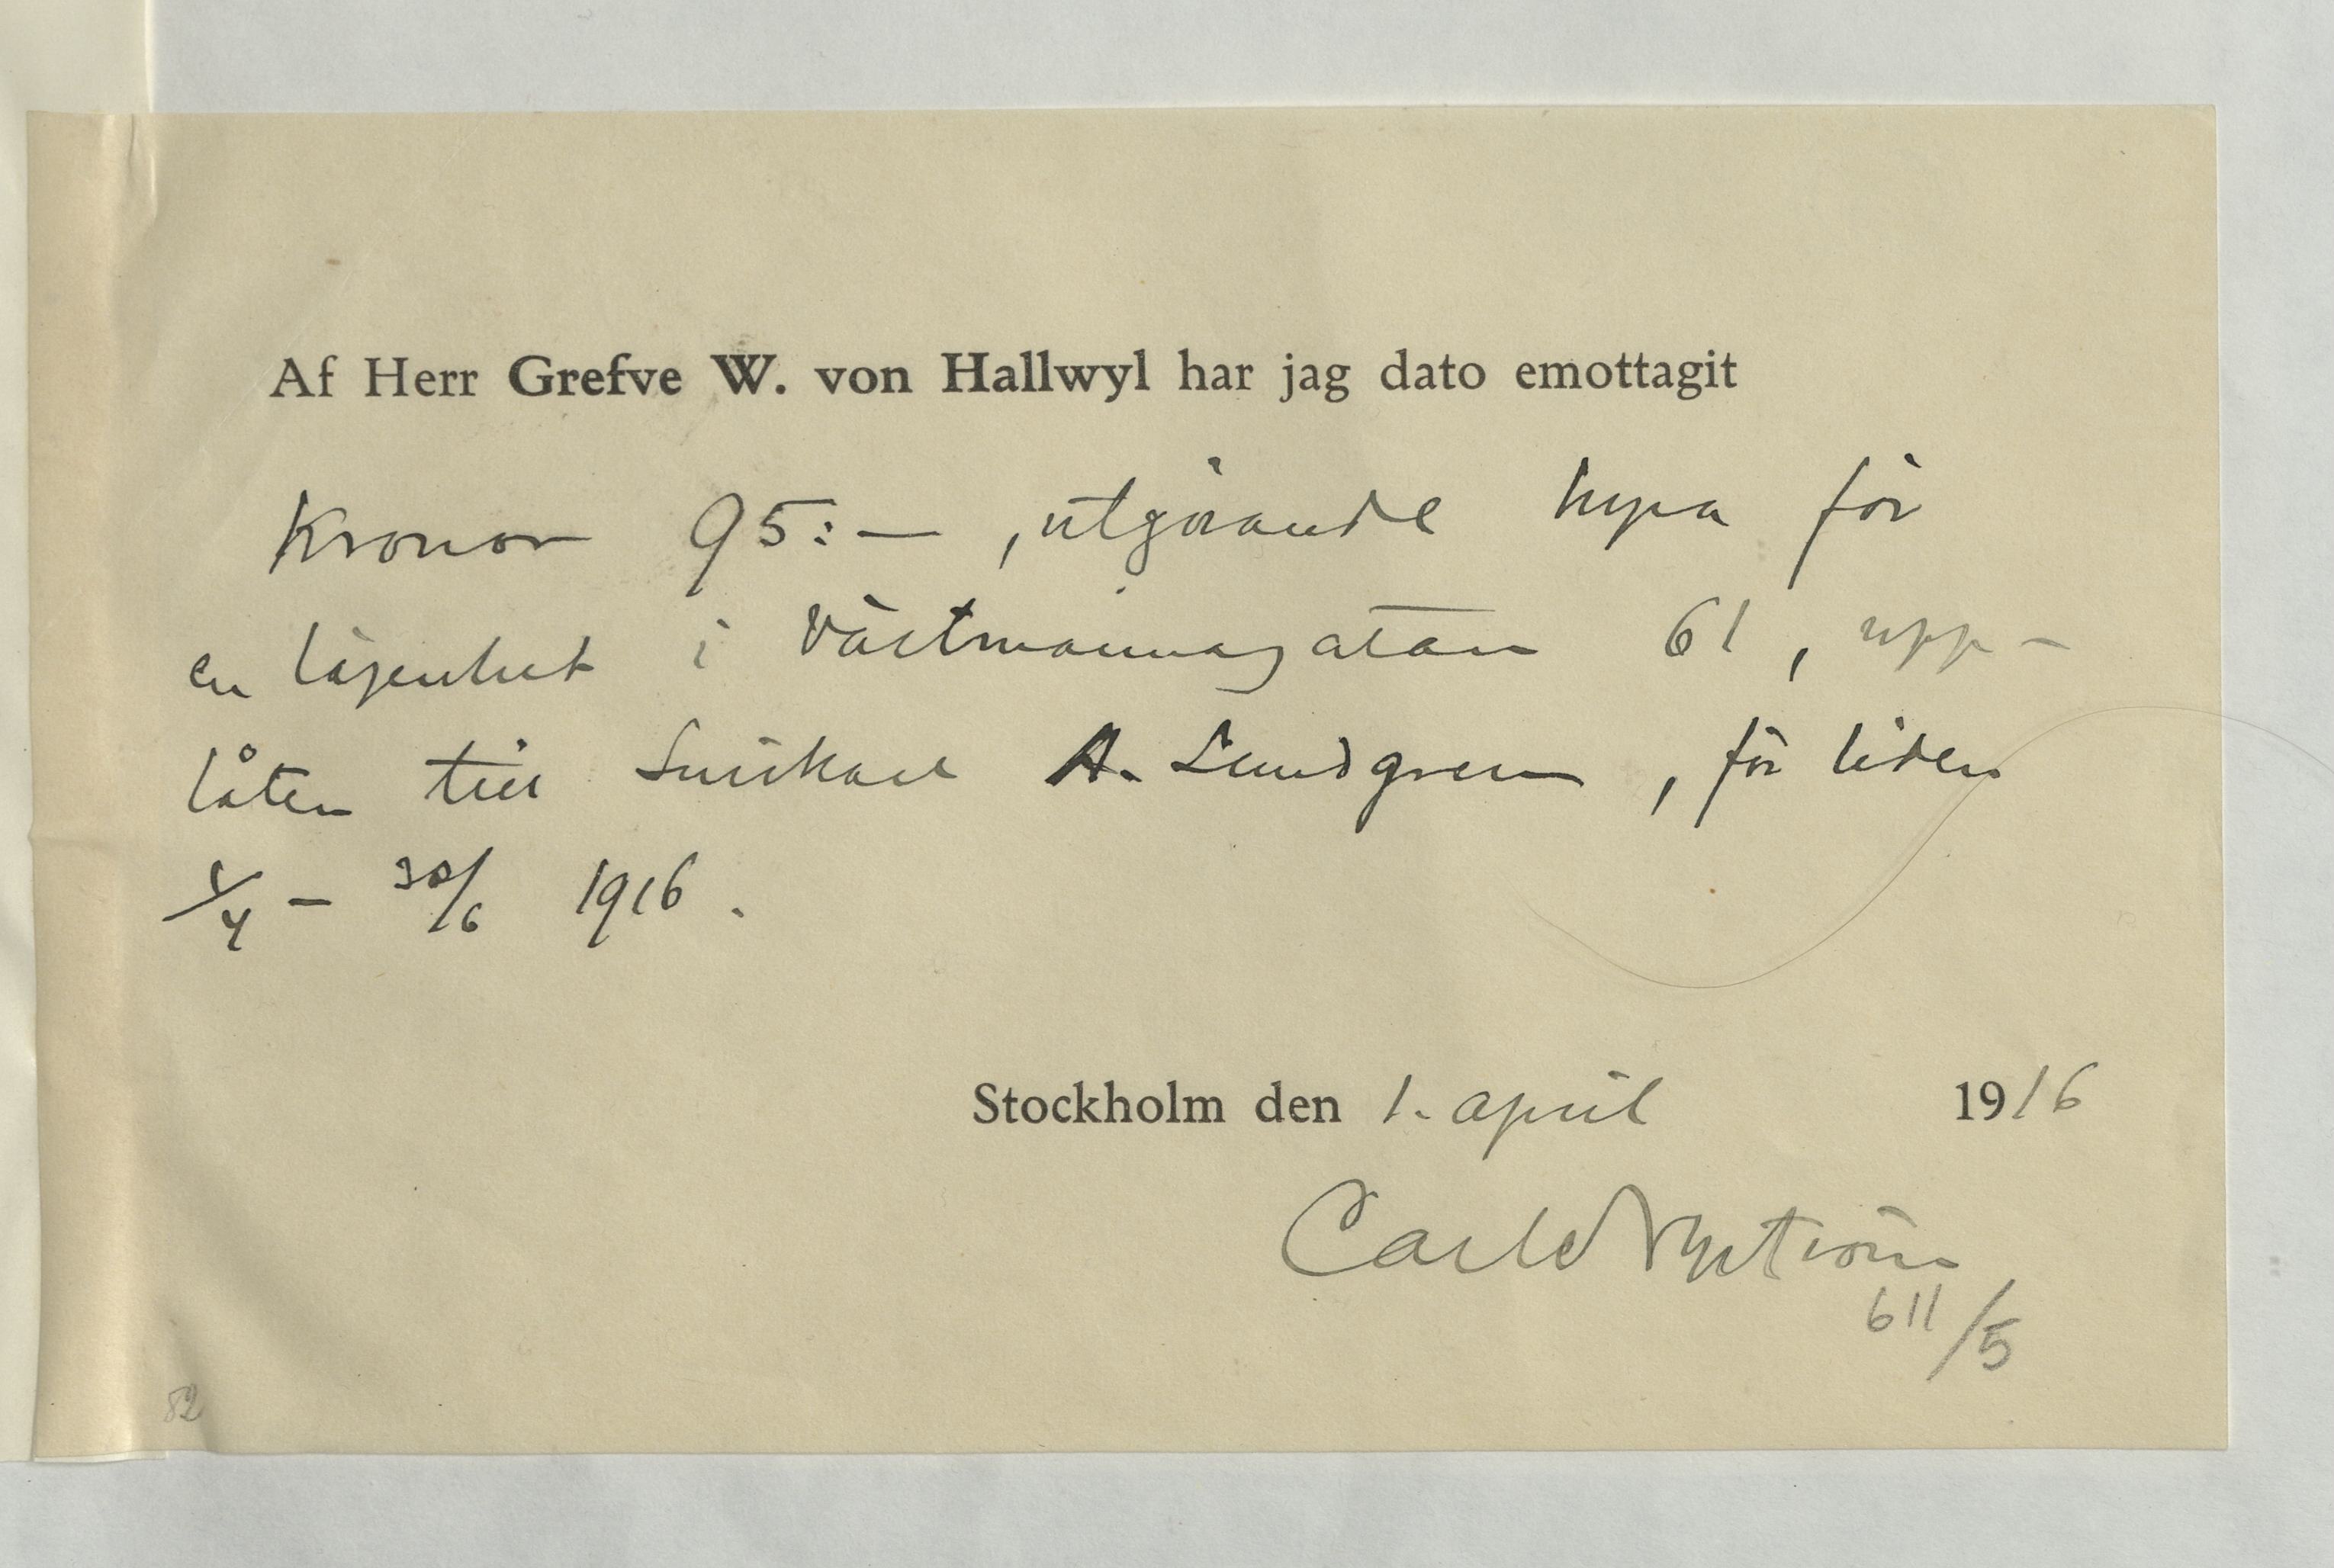 Af Herr Grefve W. von Hallwyl har jag dato emottagit
Kronor 95:—, utgörande hyra för
en lägenhet i Västmannagatan 61, upp-
låten till Snickare A. Lundgren, för tiden
1/4 – 30/6 1916.
Stockholm den 1. april 1916
Carl Nyström
611/5
82